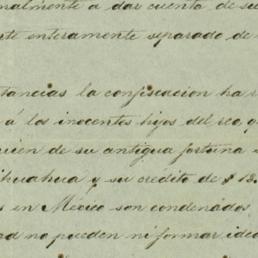 nalmente a dar cuenta de su
te enteramente separado de
tancias la confiscacion ha
á los inocentes hijos del reo q
uien de su antigua fortuna
ihuahua y su crédito de $ 13.
s en México son condenados
ad no pueden ni formar idea